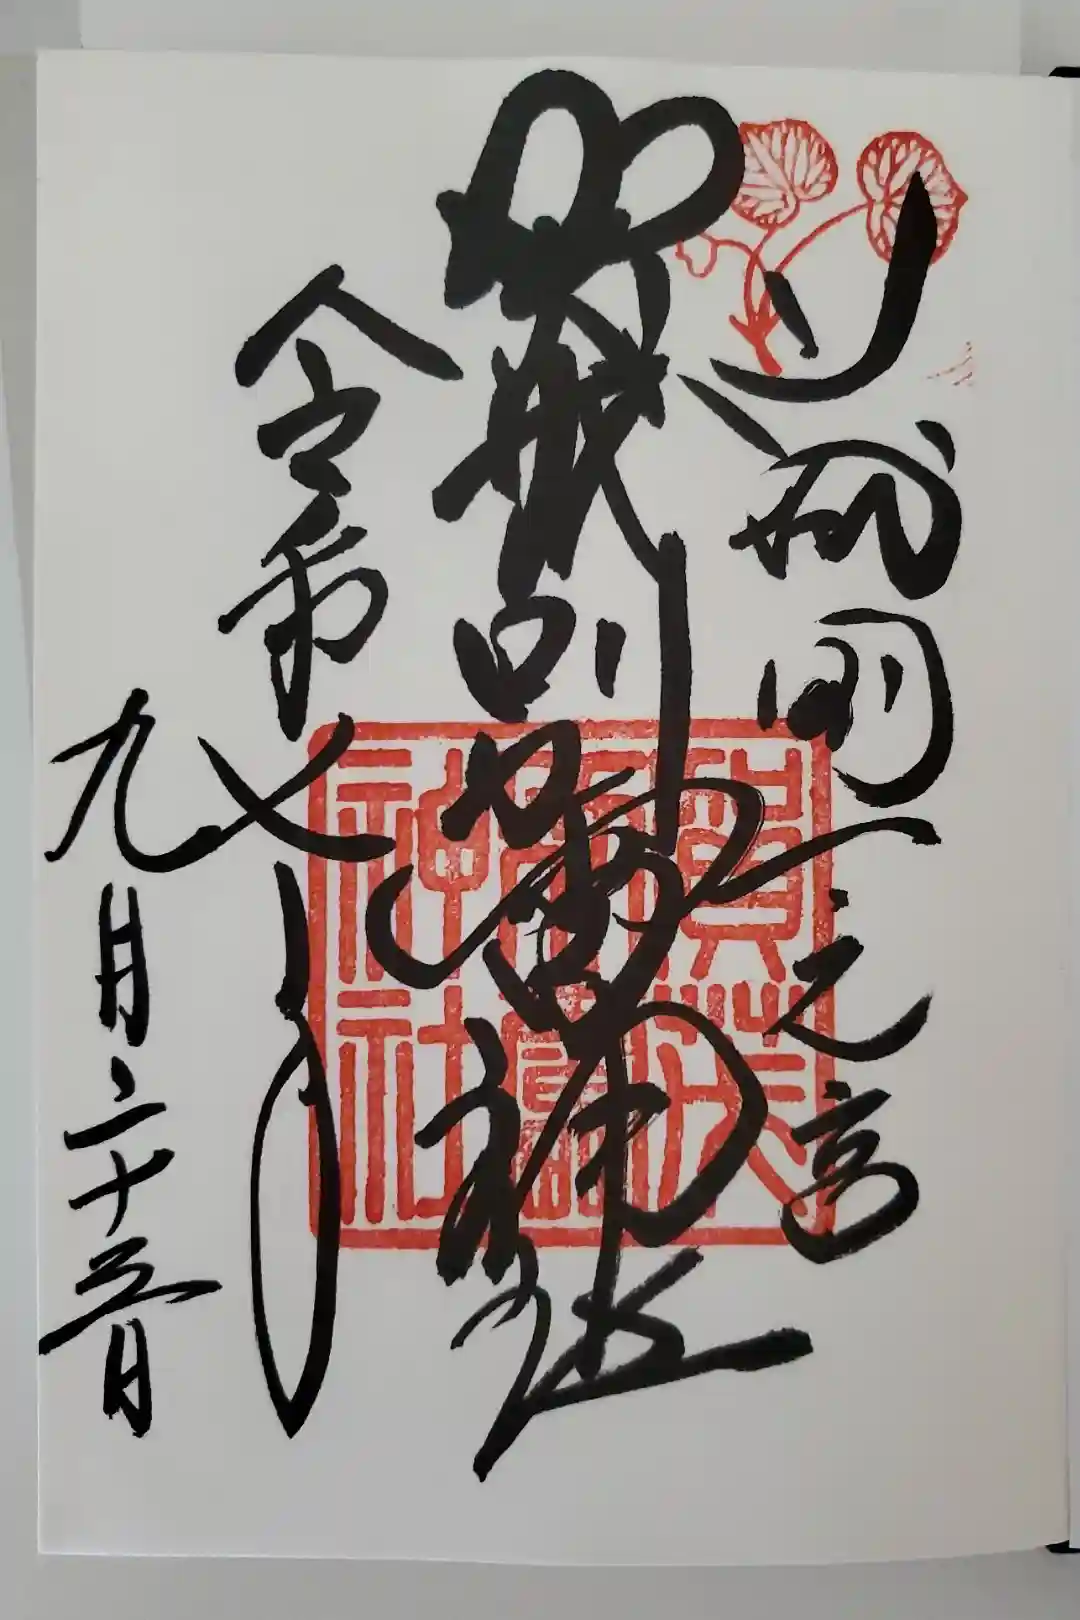 山城国一之宮
賀茂別雷神社
令和七年
九月二十五日
賀茂
別雷
神社